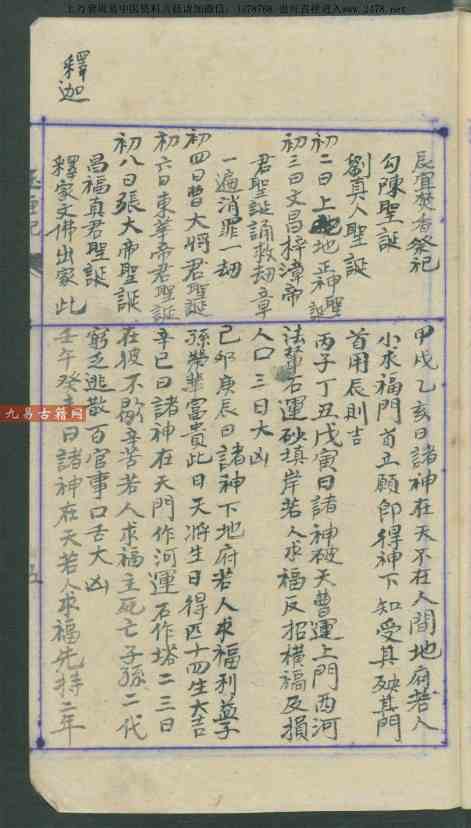 釋迦
辰宜焚香祭祀
勾陳聖誕
劉真人聖誕
初二日上地正神聖誕
初三日文昌梓潼帝
君聖誕誦救劫章
一遍消罪一劫
初四日曹大將君聖誕
初六日東華帝君聖誕
初八日張大帝聖誕
昌福真君聖誕
釋家文佛出家此
甲戌乙亥日諸神在天不在人間地府若人
小求福門首立願即得神下知受其殃其門
首用辰則吉
丙子丁丑戊寅日諸神被天曹運上門西河
法輦石運砂填岸若人求福反招橫禍及損
人口三日大凶
己卯庚辰日諸神下地府若人求福利益子
孫榮華富貴此日天將生日得四十四生大吉
辛巳日諸神在天門作河運石作堵二三日
在彼不歇辛苦若人求福主死亡子孫二代
窮乏逃散百官事口舌大凶
壬午癸未日諸神在天若人求福先持二年
五
九易古籍网